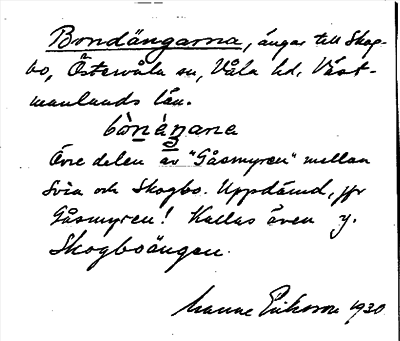 Bondängarna, ängar till Skog-
bo, Östervåla sn, Våla hd, Väst-
manlands län.
bònánana
Övre delen av "Gåsmyren" mellan
Svia och Skogbo. Uppdämd, jfr
Gåsmyren! Kallas även
Skogboängen.
Manne Eriksson 1930